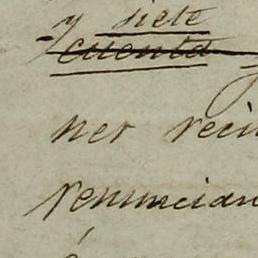 y siete
cuenta
ner reci
renuncian